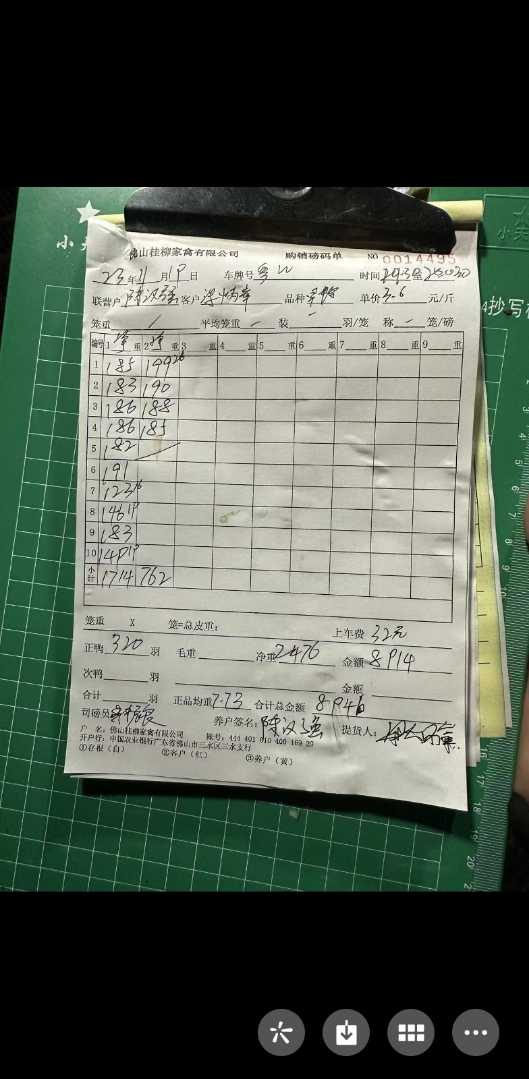 佛山桂柳家禽有限公司 购销磅码单 NO 0014495
23年11月18日 车牌号粤W 时间
联营户 客户 品种 单价3.6元/斤
笼重 / 平均笼重 - 装 - 羽/笼 称 - 笼/磅
编号 1 净 重 2 净 重 3 重 4 重 5 重 6 重 7 重 8 重 9 重
1 185 199 26
2 183 190
3 186 188
4 186 185
5 182
6 191
7 123 16
8 146 19
9 183
10 149 19
小计 1714 762
笼重 X 笼=总皮重: 上车费 32元
正鸭 320 羽 毛重 净重 2476 金额 8914
次鸭 羽 金额
合计 羽 正品均重 7.73 合计总金额 8946
司磅员 养户签名: 陈汉强 提货人:
户 名: 佛山桂柳家禽有限公司 账号:
开户行: 中国农业银行广东省佛山市三水区三水支行
①存根(白) ②客户(红) ③养户(黄)
小